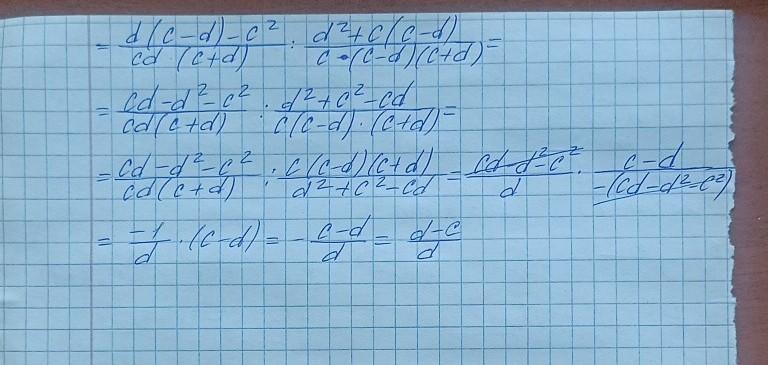 = \frac{d(c-d)-c^2}{cd \cdot (c+d)} : \frac{d^2+c(c-d)}{c \cdot (c-d)(c+d)} =
= \frac{cd-d^2-c^2}{cd(c+d)} : \frac{d^2+c^2-cd}{c(c-d) \cdot (c+d)} =
= \frac{cd-d^2-c^2}{cd(c+d)} : \frac{c(c-d)(c+d)}{d^2+c^2-cd} = \frac{cd-d^2-c^2}{d} \cdot \frac{c-d}{-(cd-d^2-c^2)}
= \frac{-1}{d} \cdot (c-d) = -\frac{c-d}{d} = \frac{d-c}{d}